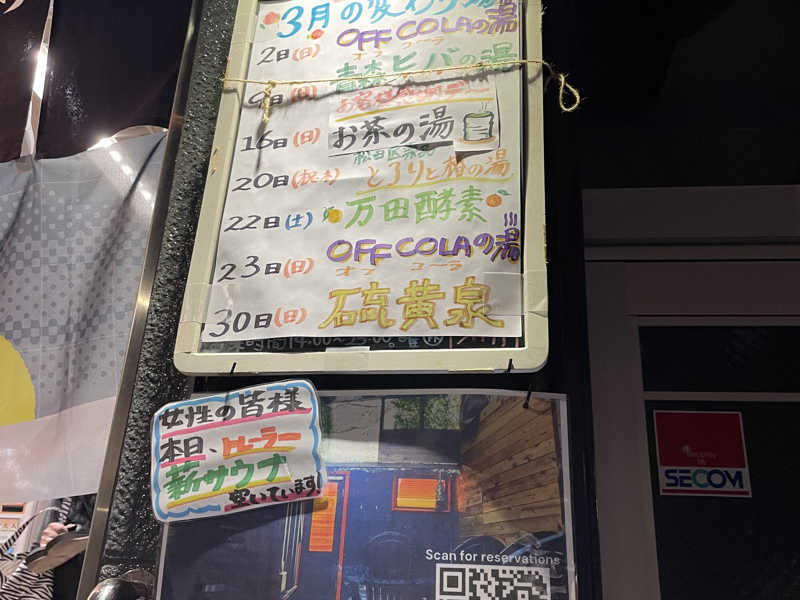 3月の変わり湯
2日(日) OFF COLAの湯
オフ コーラ
9日(日) 青森ヒバの湯
お客様感謝デー
16日(日) お茶の湯
20日(祝木) とろりと柚の湯
22日(土) 万田酵素
23日(日) OFF COLAの湯
オフ コーラ
30日(日) 硫黄泉
女性の皆様
本日、トレーラー
薪サウナ
空いています!
Scan for reservations
Security
by
SECOM